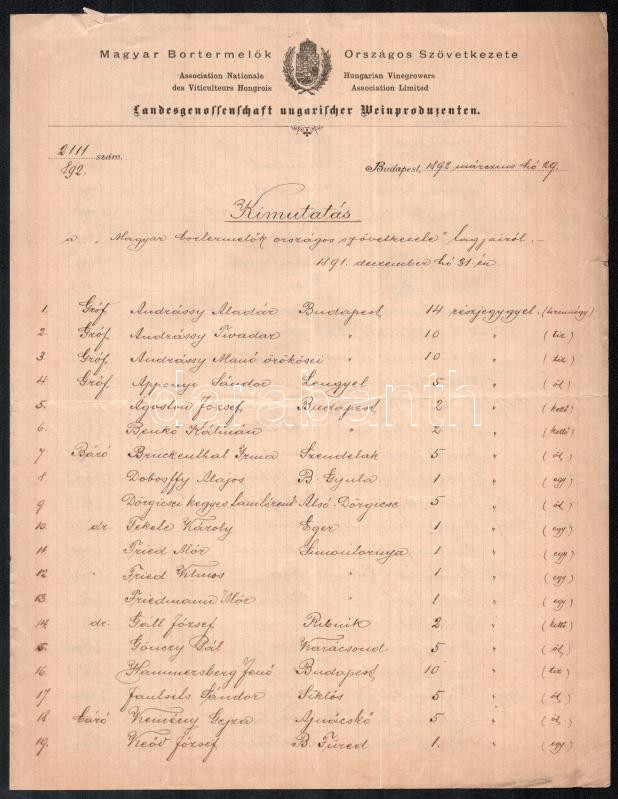 Magyar Bortermelők Országos Szövetkezete
Association Nationale Hungarian Vinegrowers
des Viticulteurs Hongrois Association Limited
Landesgenossenschaft ungarischer Weinproduzenten.
2111 szám.
892.
Budapest, 1892 március hó 29.
Kimutatás
a „Magyar bortermelők országos szövetkezete" tagjairól.-
1891. deczember hó 31-én.
1. Gróf Andrássy Aladár Budapest 14 részjegygyel. (tizennégy)
2. Gróf Andrássy Tivadar " 10 " (tíz)
3. Gróf Andrássy Manó örökösei " 10 " (tíz)
4. Gróf Apponyi Sándor Lengyel 5 " (öt)
5. Ágoston József Budapest 2 " (kettő)
6. Benkó Kálmán " 2 " (kettő)
7 Báró Bruckenthal Irma Szendelak 5 " (öt)
8. Dobosffy Alajos B. Gyula 1 " (egy)
9 Dörgicsei kegyes Alsó-Dörgicse 5 " (öt)
10. dr. Fekete Károly Eger 1 " (egy)
11. Fried Mór Simontornya 1 " (egy)
12 Fried Vilmos " 1 " (egy)
13. Friedmann Mór " 1 " (egy)
14. dr. Gáll József Ribnik 2 " (kettő)
15. Gönczy Pál Karácsond 5 " (öt)
16. Hammersberg Jenő Budapest 10 " (tíz)
17 Sándor Siklós 5 " (öt)
18 báró Kemény Gejza Ajnácskő 5 " (öt)
19. József B. Füred 1. " (egy)
darabanth